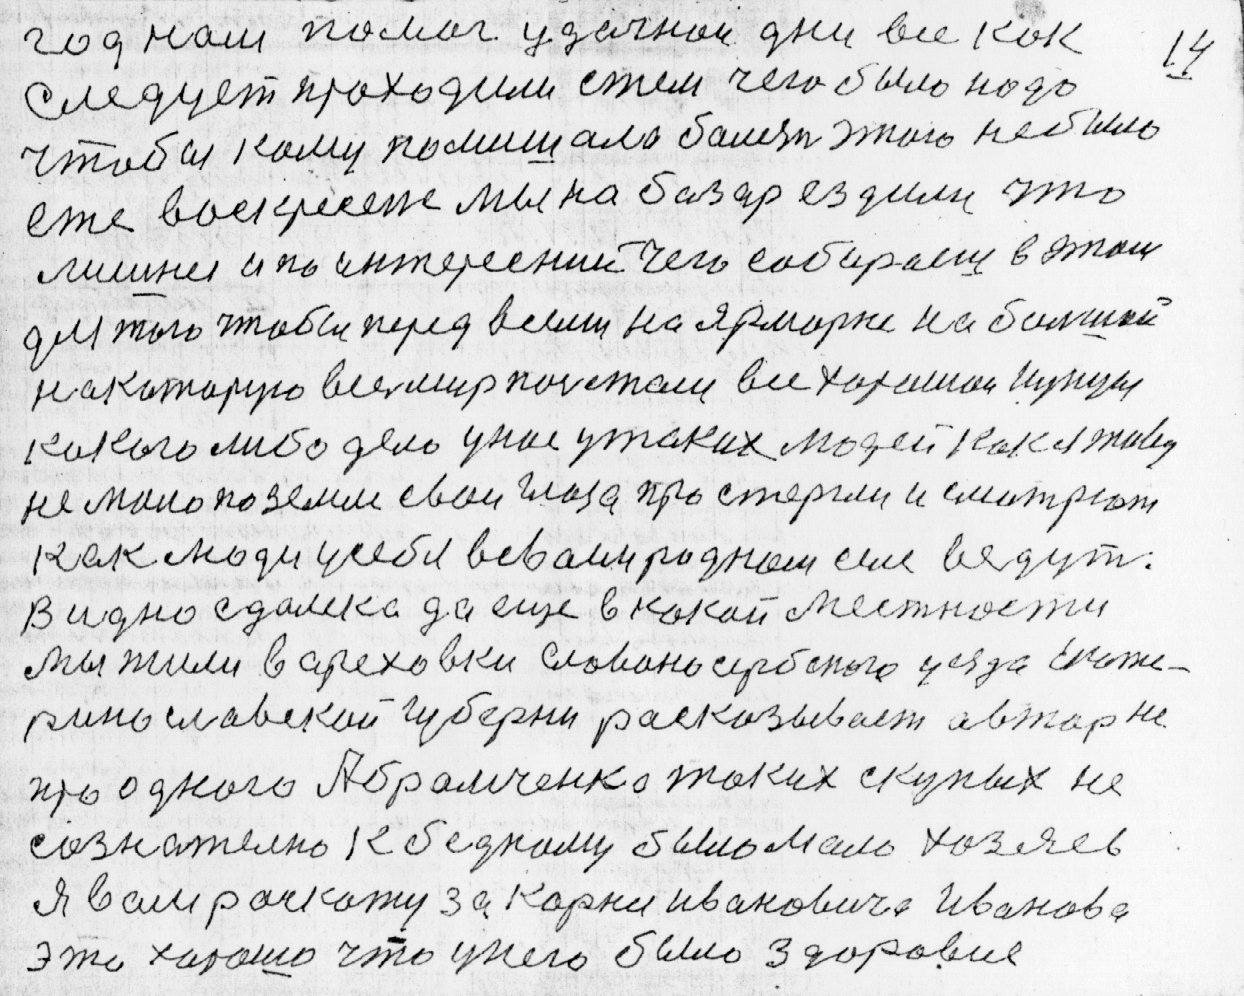 14
год нам помог удачнои дни все как
следует проходили стем чего было надо
чтобы кому помишало балезн этого небыло
еже воскресене мы на базар ездили что
лишнея и по интересний чего собираеш в этом
для того чтобы перед всеми на ярмарке на болшой
накоторую весмир почетали все хорошои
какого либо дело умне утаких людей как я живу
не мало по земли свои глаза простерли и смотрют
как люди усебя всвоем родном селе ведут.
Видно сдалека да еще в какой местности
мы жили в ареховки словоносербского уезда Екате-
ринославской губерни расказывает автор не
про одного Абрамченко таких скупых не
сознателно к бедному было мало хозяев
я вам раскажу за Карня ивановича Иванова
это хорошо что унего было здоровие